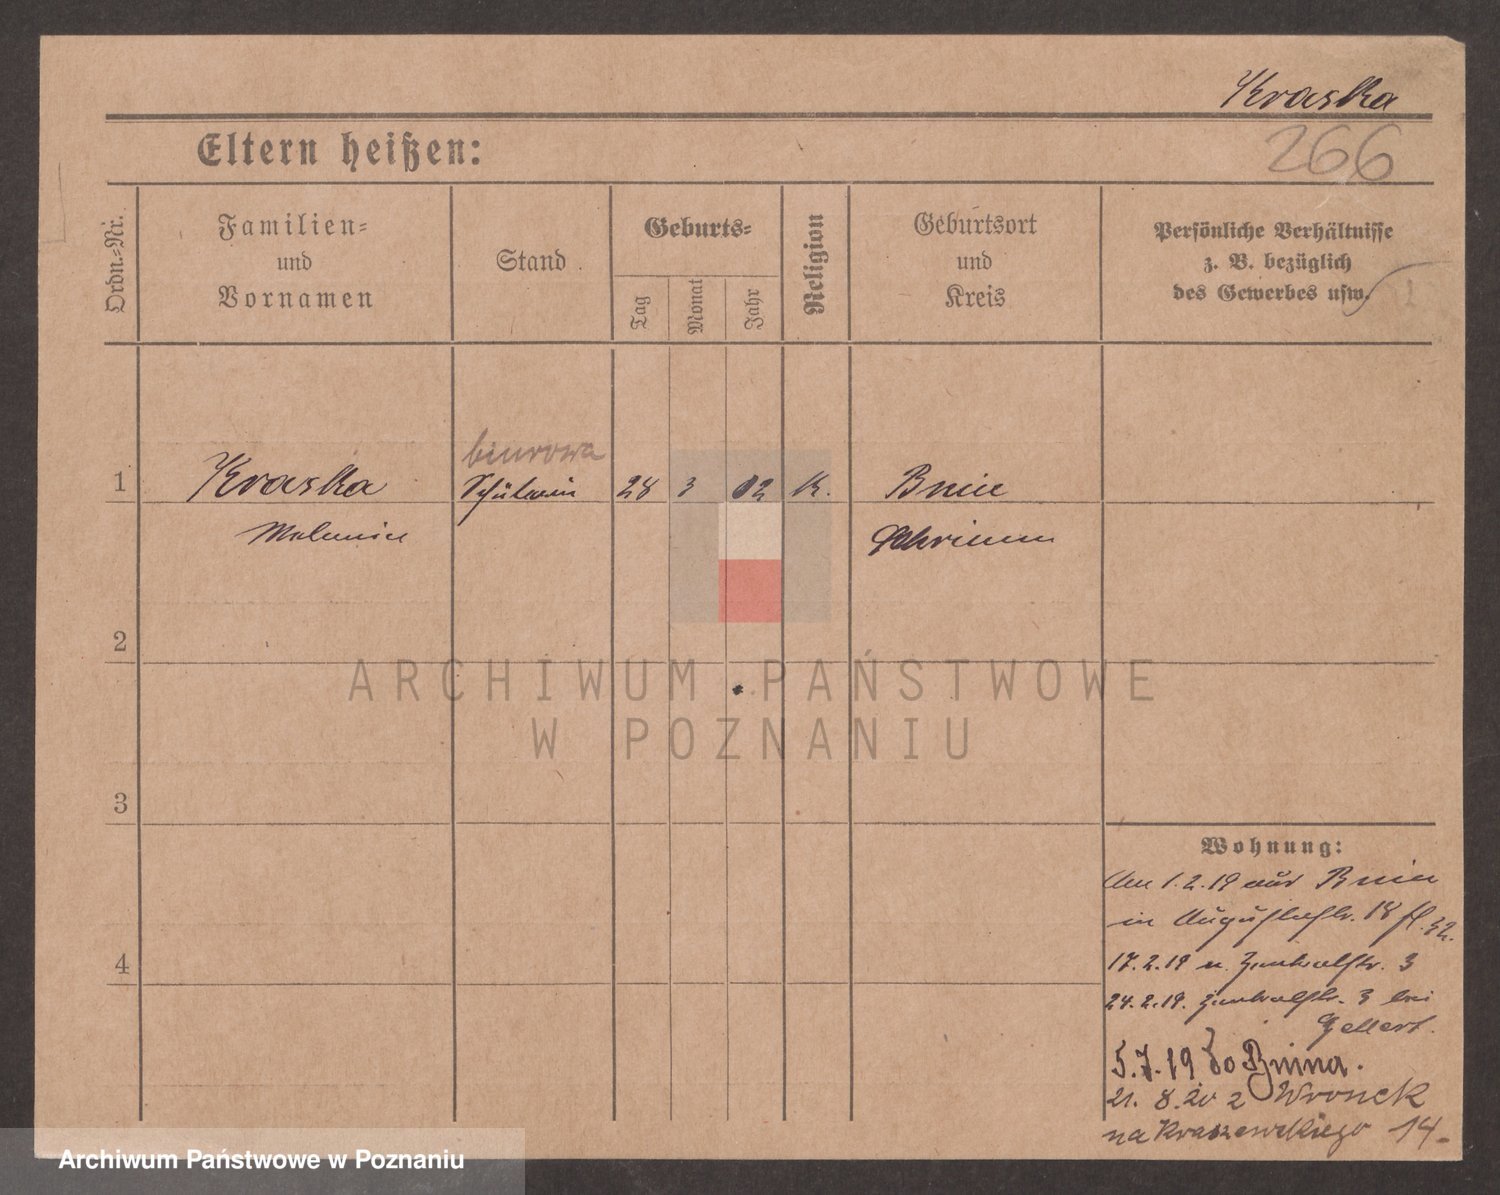 Kraska
266
Eltern heißen:
Ordn.-Nr.
Familien-
und
Vornamen
Stand
Geburts-
Tag
Monat
Jahr
Religion
Geburtsort
und
Kreis
Persönliche Verhältnisse
z. B. bezüglich
des Gewerbes usw.
biurowa
1 Kraska Schülerin 28 3 02 K. Bnin
Melanie Schrimm
2
ARCHIWUM PAŃSTWOWE
W POZNANIU
3
Wohnung:
Am 1.2.19 aus Bnin
in Augustastr. 18
4
17.2.19 n. Zentralstr. 3
24.2.19. Zentralstr. 3 bei
Gellert.
5.7.19 do Bnina.
21. 8. 20 z Wronek
na Kraszewskiego 14
Archiwum Państwowe w Poznaniu